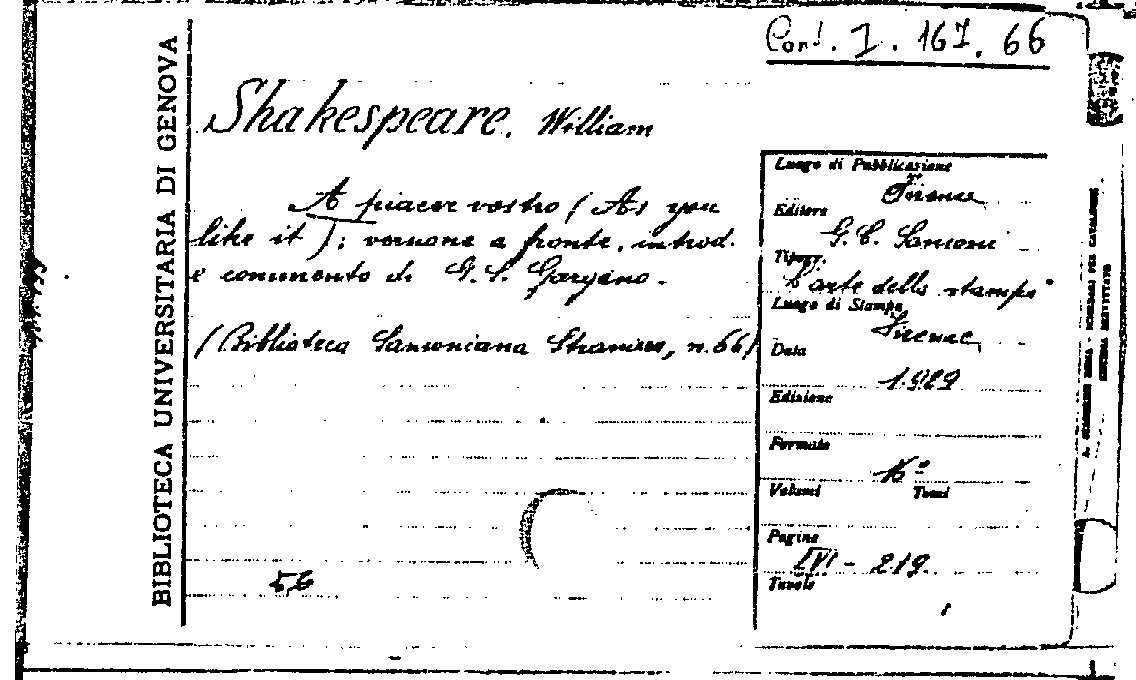 Conf. I. 167. 66
BIBLIOTECA UNIVERSITARIA DI GENOVA
Shakespeare. William
A piacer vostro (As you
like it); versione a fronte, introd.
e commento di G. S. Gargano.
(Biblioteca Sansoniana Straniera, n. 66)
56
Luogo di Pubblicazione
Firenze
Editore
G. C. Sansoni
Tipogr.
L'arte della stampa"
Luogo di Stampa
Firenze
Data
1929
Edizione
Formato
16°
Volumi Tomi
Pagine
LVI - 219.
Tavole